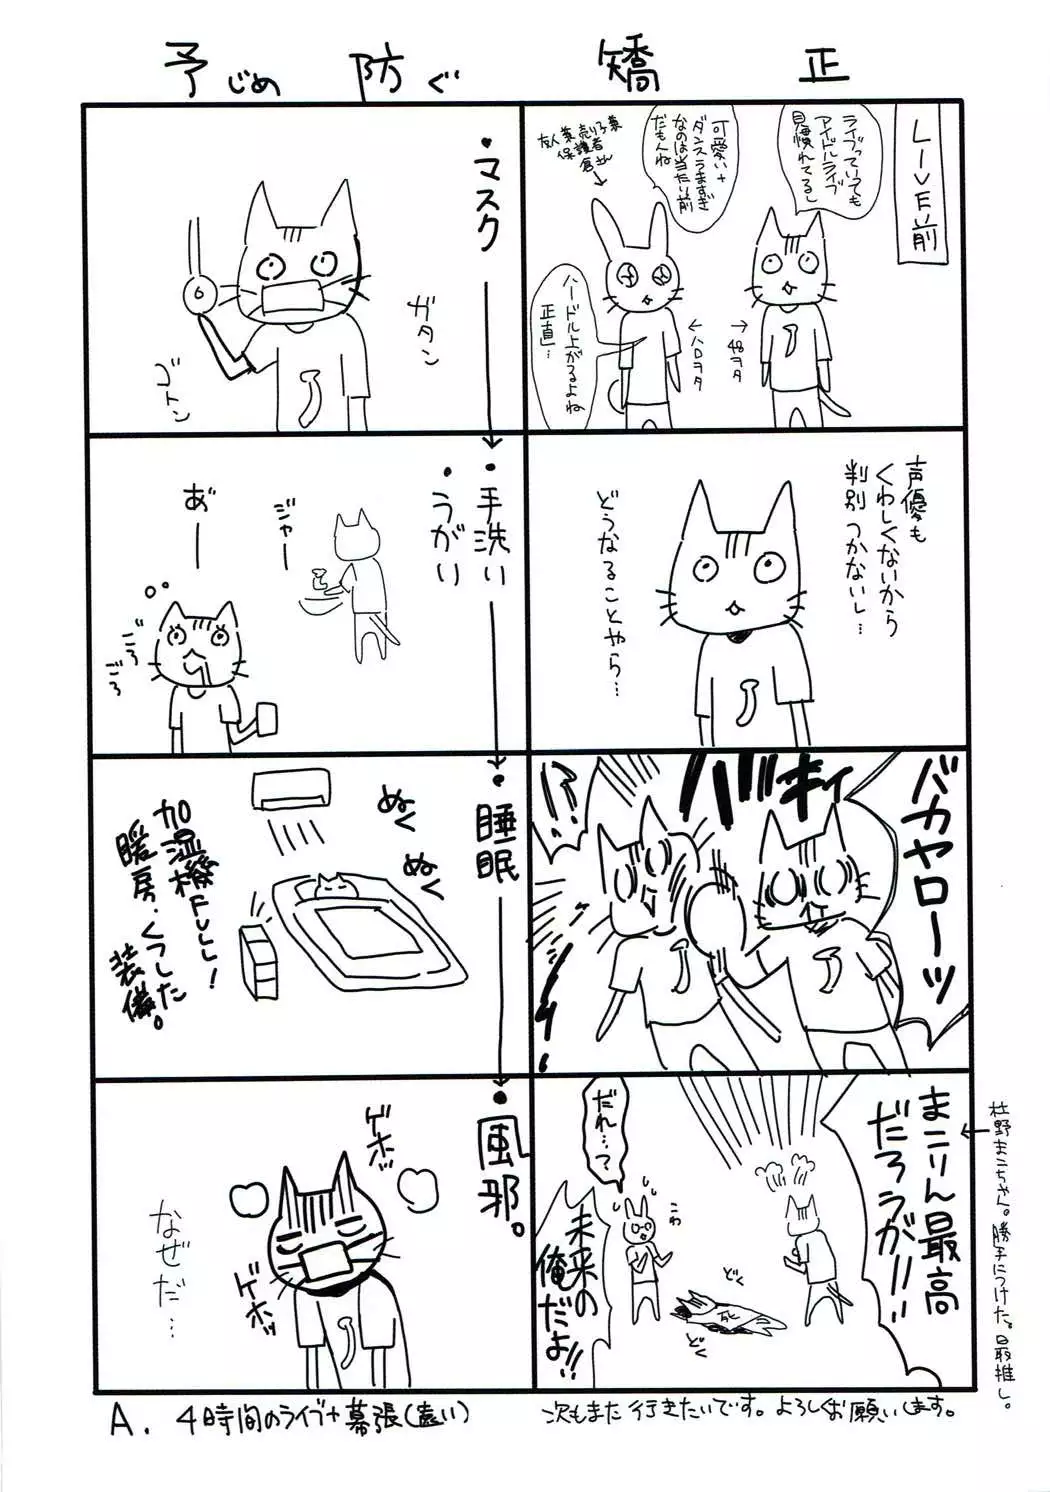 矯正
LIVE前
ライブっていっても
アイドルライブ
見慣れてるし
可愛い+
ダンスうますぎ
なのは当たり前
だもんね
友人兼売り子兼
保護者
倉さん
→48ヲタ
←ハロヲタ
ハードル上がるよね
正直…
声優も
くわしくないから
判別つかないし…
どうなることやら…
バカヤローッ
バキィ
!?
まこりん最高
だろうが!!
未来の
俺だよ!!
だれ…?
こわ
どく
どく
死
杜野まこちゃん。勝手につけた。最推し。
次もまた行きたいです。よろしくお願いします。
予じめ防ぐ
・マスク
ガタン
ゴトン
・手洗い
・うがい
ジャー
あ゛ー
ごろ
ごろ
・睡眠
ぬく
ぬく
加湿機FULL!
暖房・くつした
装備。
・風邪。
ゲホッ
ゲホッ
なぜだ…
A. 4時間のライブ+幕張(遠い)